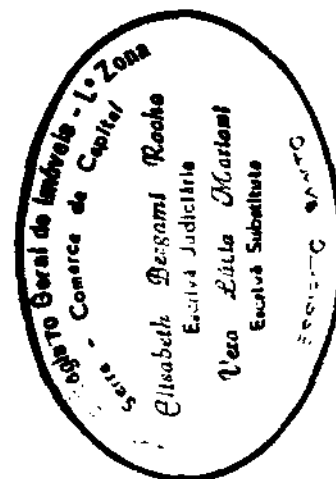 Registro Geral de Imóveis - 1ª Zona
Serra - Comarca da Capital
Elisabeth Bergami Rocha
Escrivã Judiciária
Vera Lúcia Mariani
Escrivã Substituta
ESPIRITO SANTO